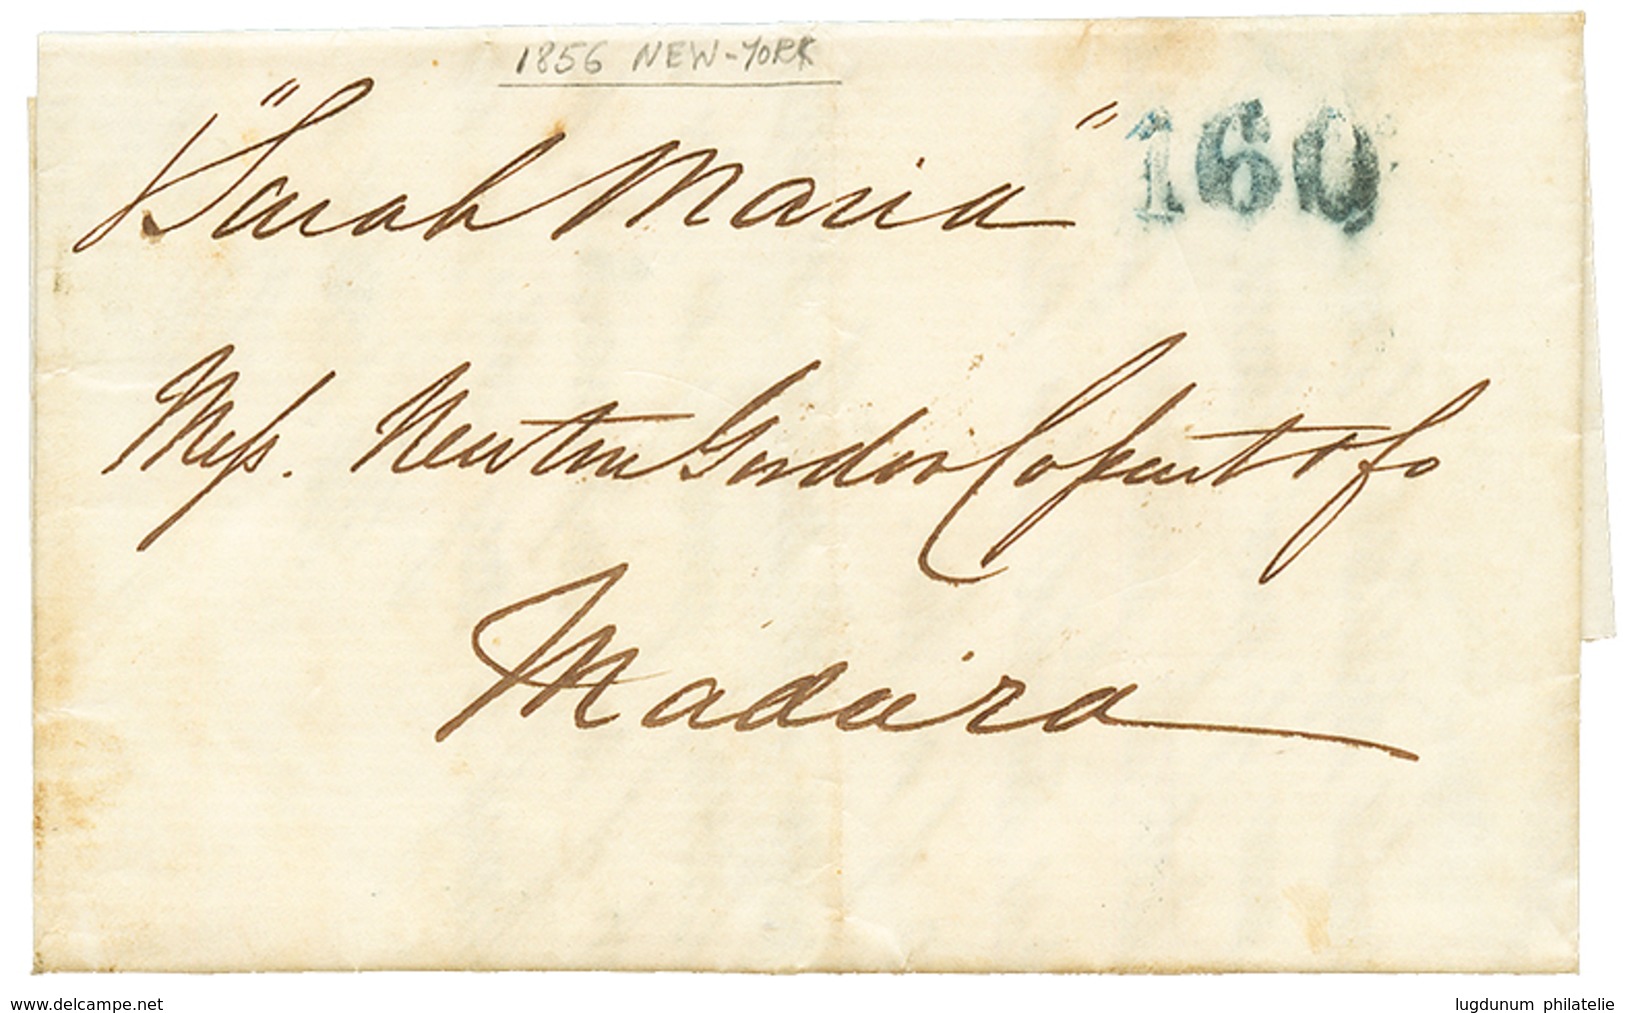 1856 NEW-YORK
p "Sarah Maria" 160
Mess. Newton Gordon Cossart & Co
Madeira
www.delcampe.net
lugdunum philatelie